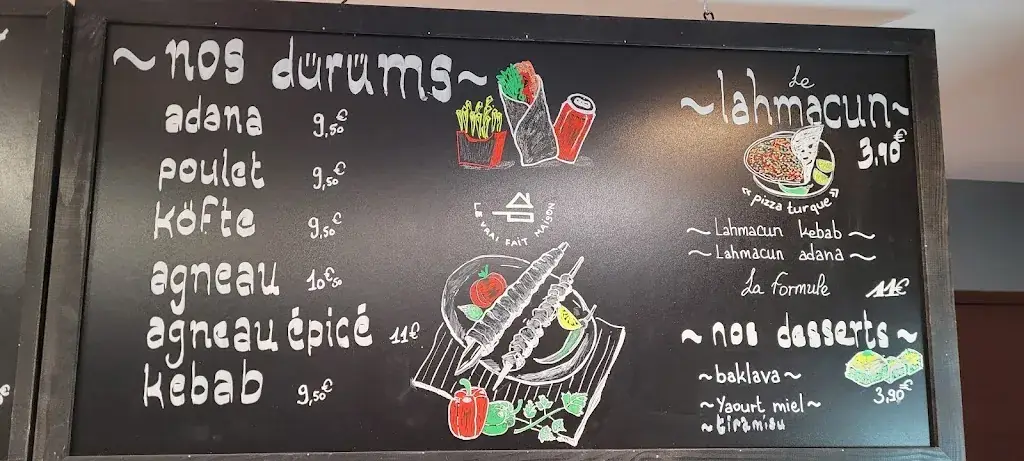 ~nos dürüms~
adana 9,50€
poulet 9,50€
köfte 9,50€
agneau 10€50
agneau épicé 11€
kebab 9,50€
LE VRAI FAIT MAISON
Le
~lahmacun~
3,90€
"pizza turque"
~ Lahmacun kebab ~
~ Lahmacun adana ~
La formule 11€
~ nos desserts ~
~baklava~
3,90€
~Yaourt miel~
~tiramisu